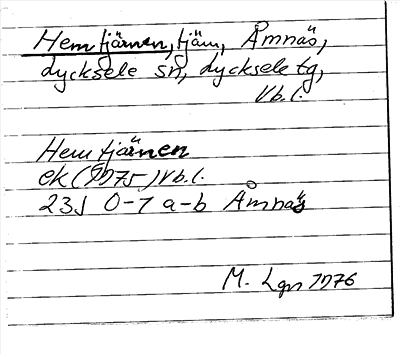 Hemtjärnen, tjärn, Åmnäs,
Lycksele sn, Lycksele tg,
Vb.l.
Hemtjärnen
ek (1975) Vb.l.
23J 0-1 a-b Åmnäs
M. Lgn 1976